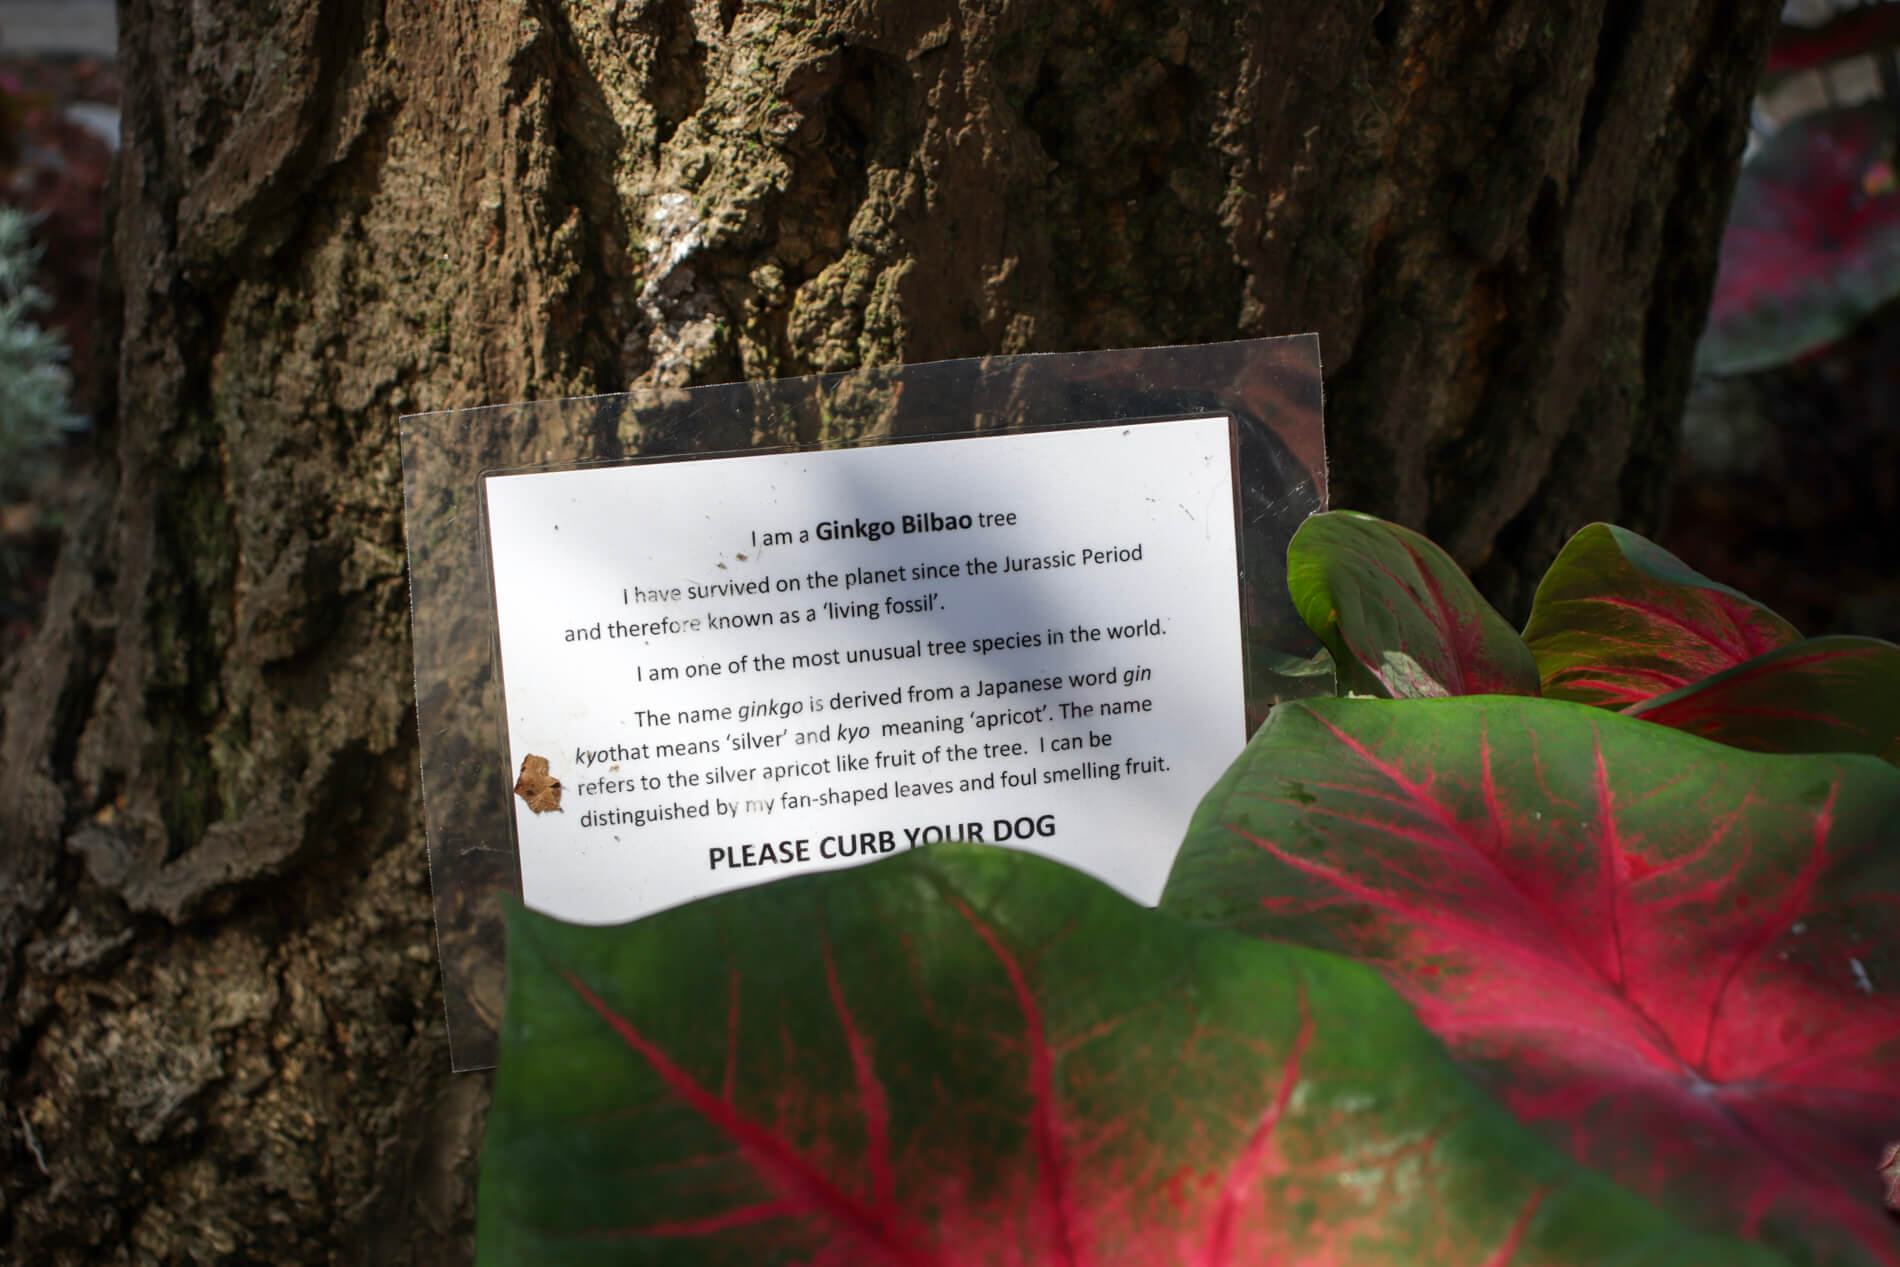 I am a Ginkgo Bilbao tree
I have survived on the planet since the Jurassic Period
and therefore known as a ‘living fossil’.
I am one of the most unusual tree species in the world.
The name ginkgo is derived from a Japanese word gin
kyothat means ‘silver’ and kyo meaning ‘apricot’. The name
refers to the silver apricot like fruit of the tree. I can be
distinguished by my fan-shaped leaves and foul smelling fruit.
PLEASE CURB YOUR DOG